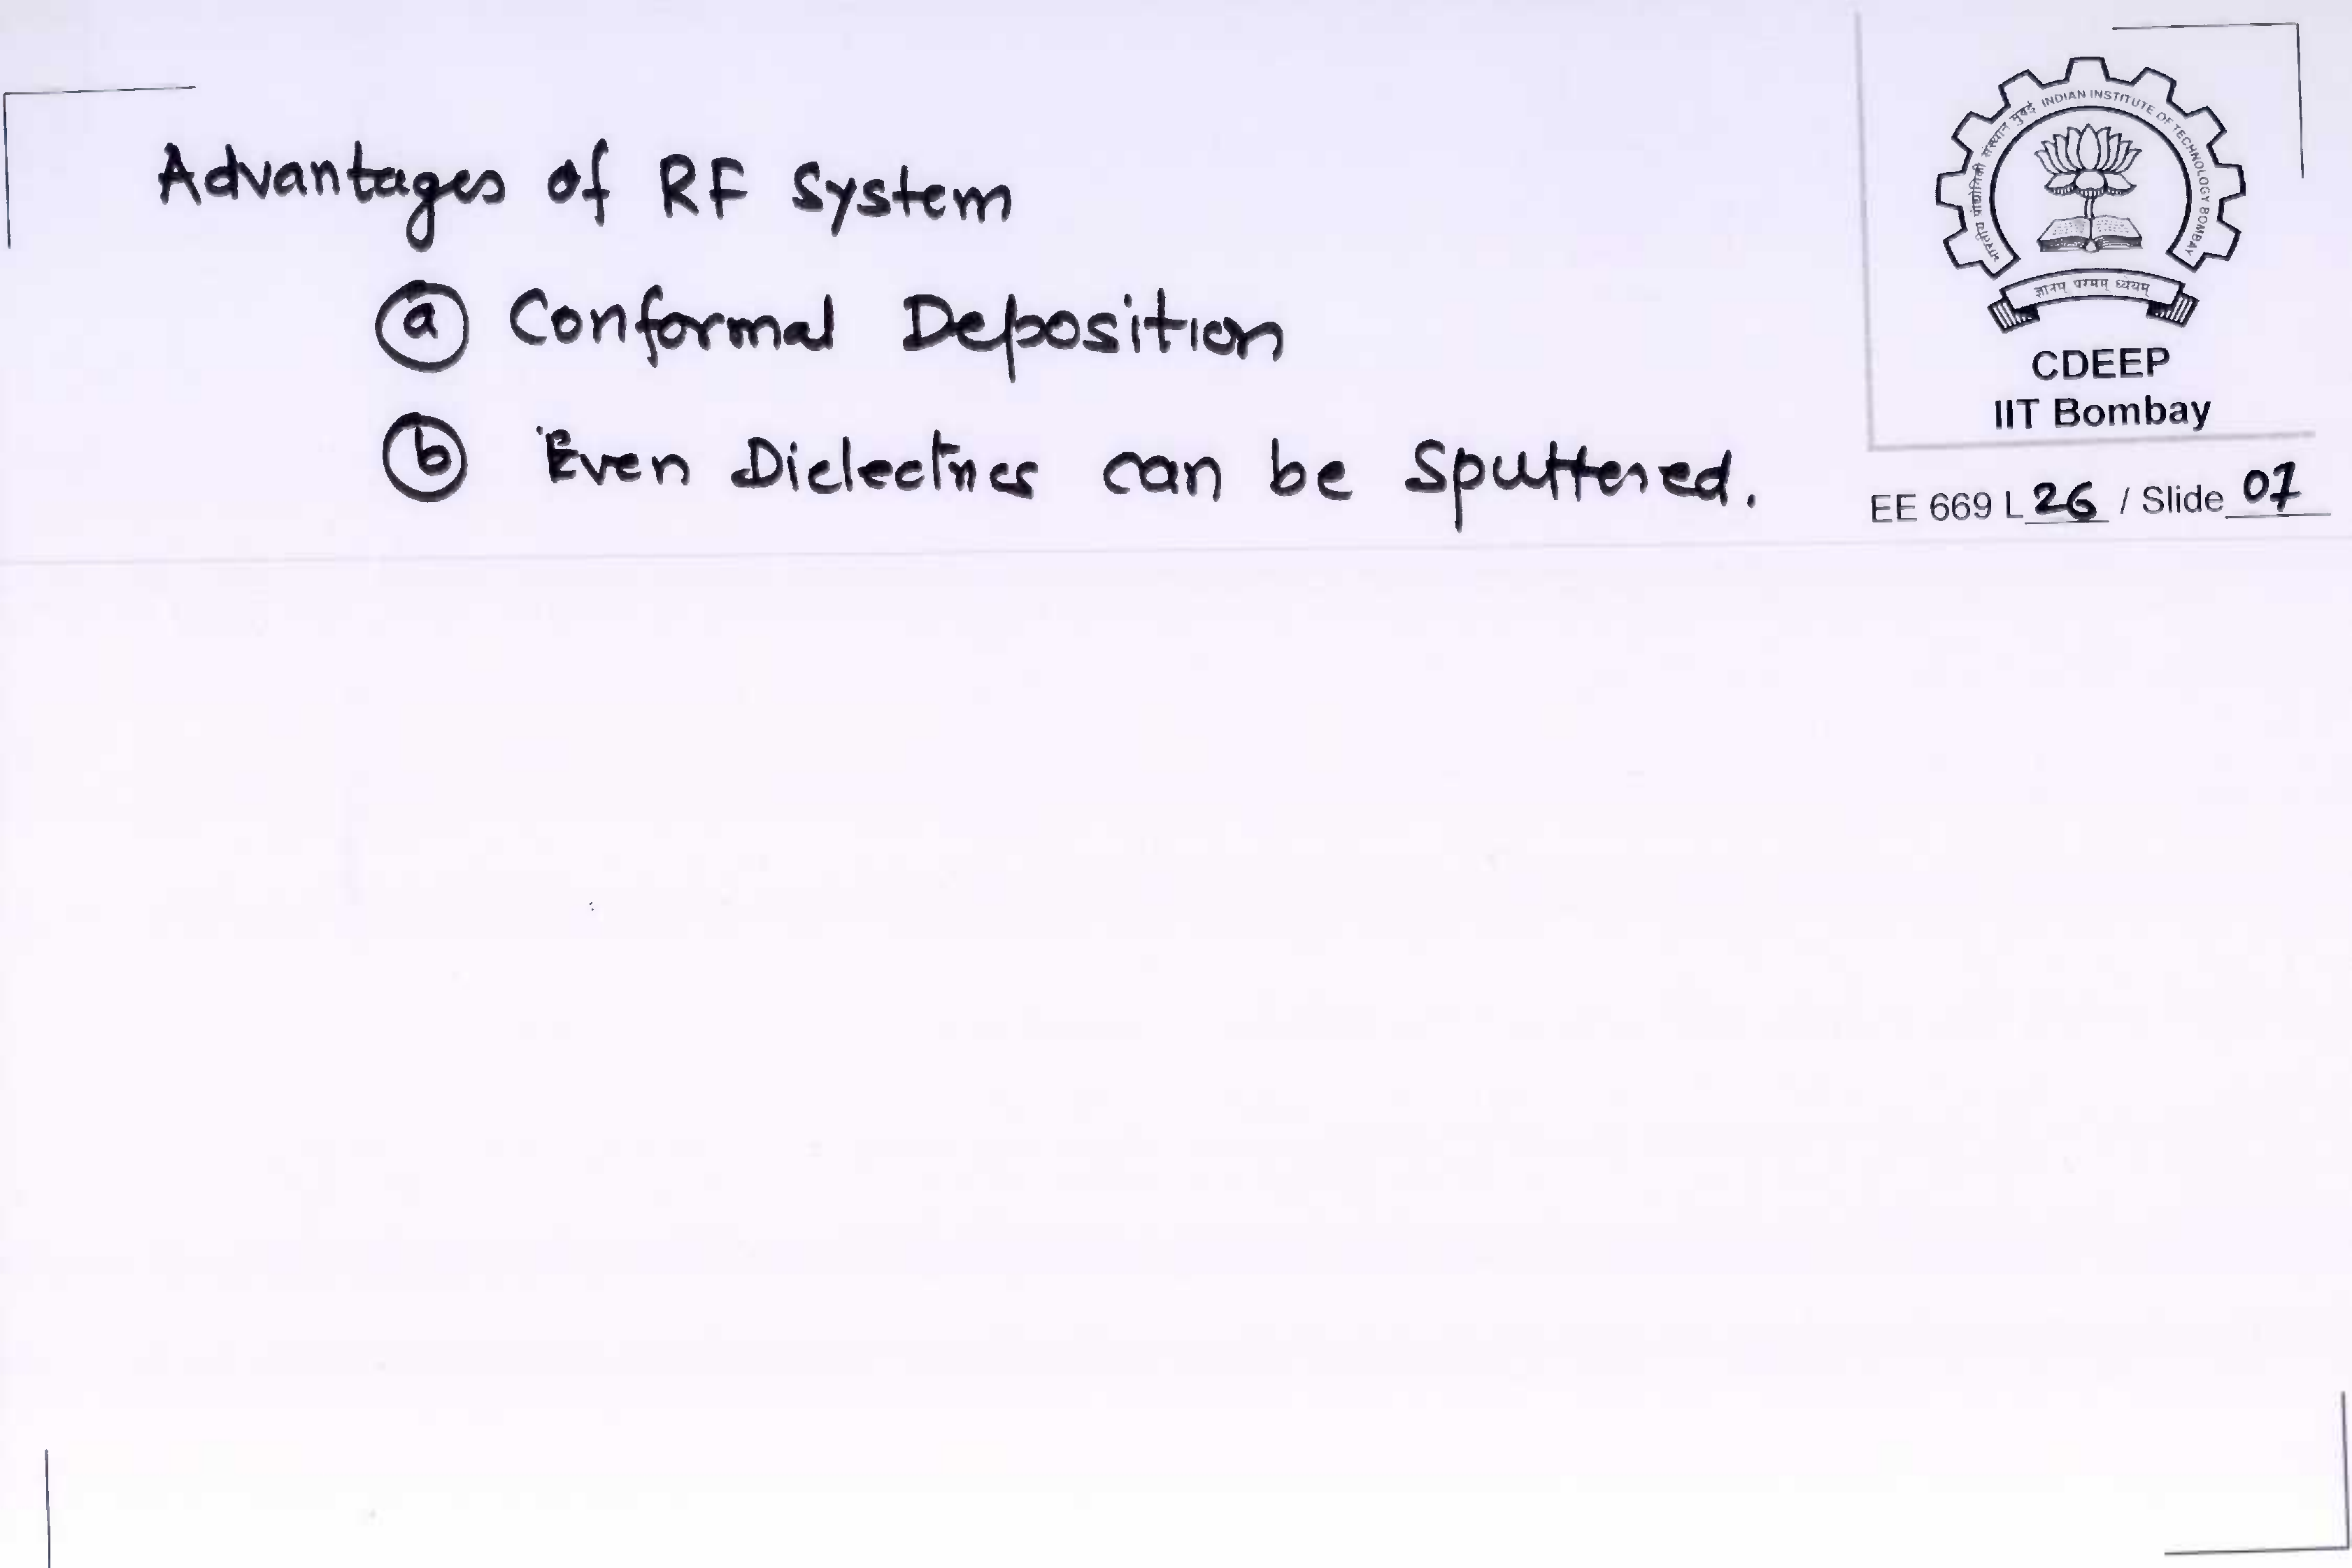 Advantages of RF System
ⓐ Conformal Deposition
ⓑ Even Dielectrics can be Sputtered.
भारतीय प्रौद्योगिकी संस्थान मुंबई INDIAN INSTITUTE OF TECHNOLOGY BOMBAY
ज्ञानम् परमम् ध्येयम्
CDEEP
IIT Bombay
EE 669 L 26 / Slide 07